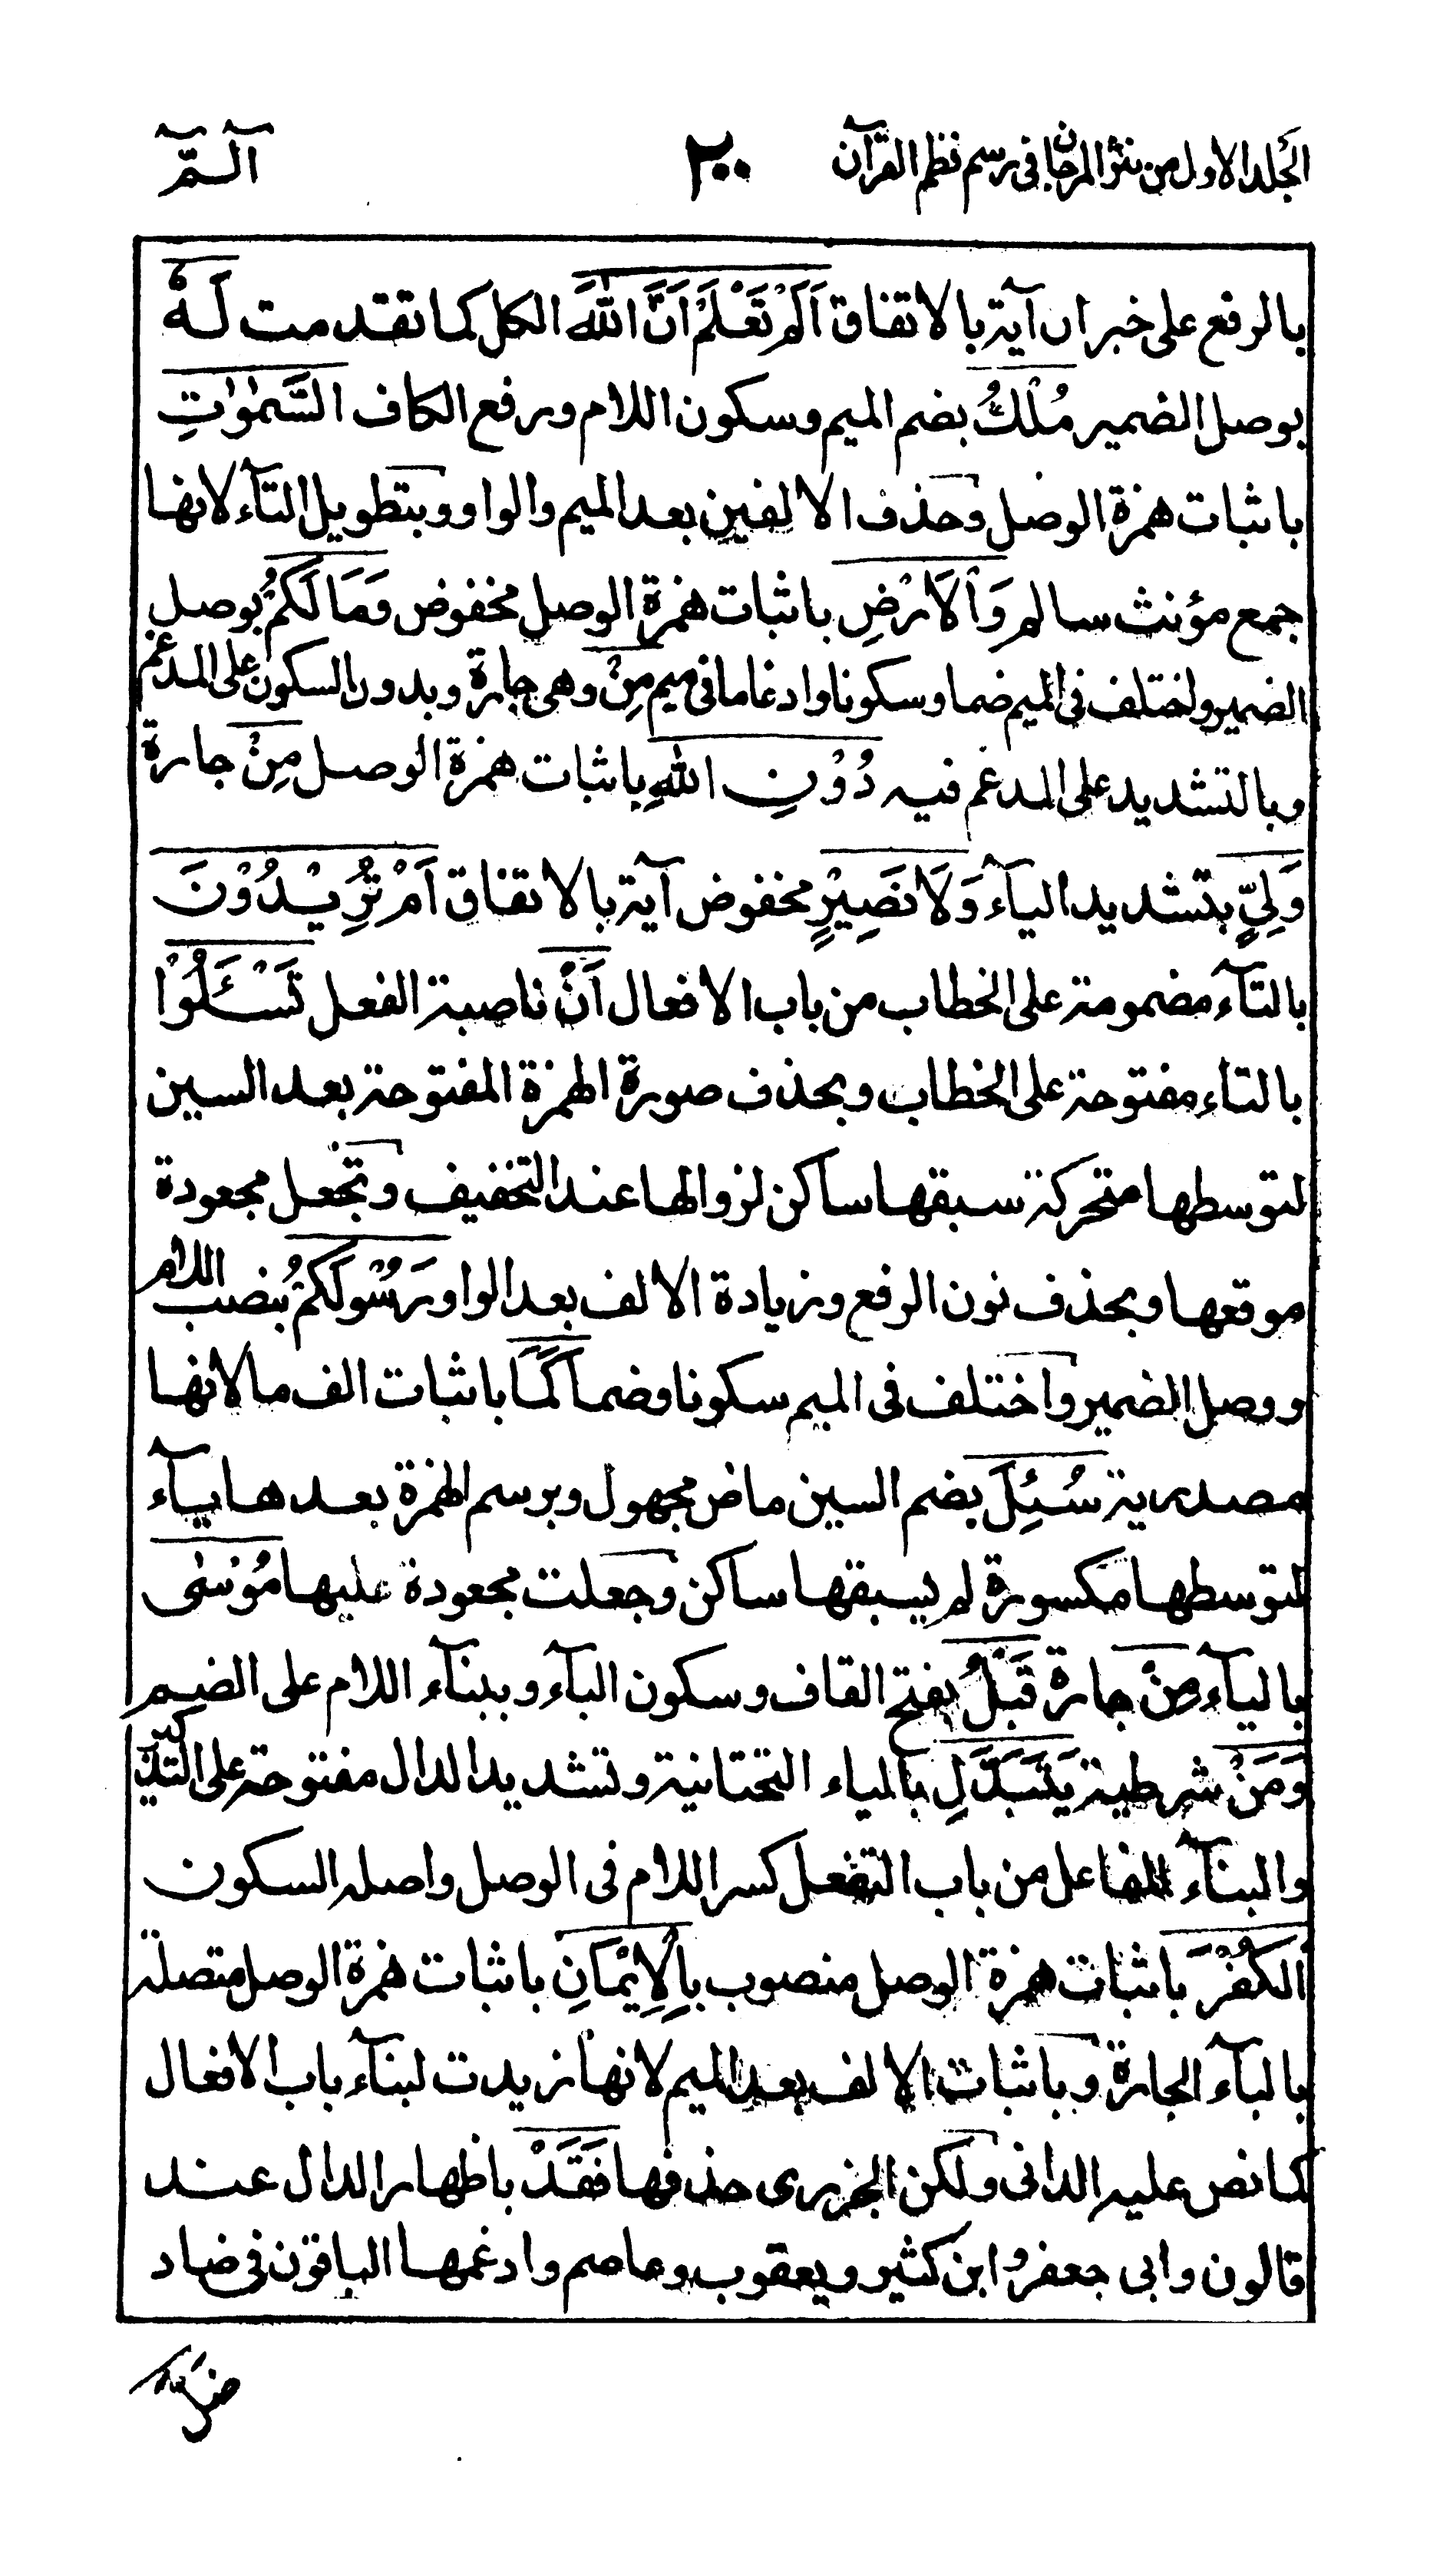 الجلد الاول من نثر المرجان فى رسم نظم القرآن ٢٠٠ آلـمّٓ
بالرفع على خبر ان آية بالاتفاق اَلَمْ تَعْلَمْ اَنَّ اللّٰهَ الكل كما تقدمت لَـهٗ
بوصل الضمير مُلْكُ بضم الميم وسكون اللام ورفع الكاف السَّمٰوٰتِ
باثبات همزة الوصل وحذف الالفين بعد الميم والواو وبتطويل التآء لانها
جمع مؤنث سالم وَالْاَرْضِ باثبات همزة الوصل مخفوض وَمَا لَكُمْ بوصل
الضمير واختلف فى الميم ضما وسكونا وادغاما فى ميم مِنْ وهى جارة وبدون السكون على المدغم
وبالتشديد على المدغم فيه دُوْنِ اللّٰهِ باثبات همزة الوصل مِنْ جارة
وَلِيٍّ بتشديد اليآء وَلَا نَصِيْرٍ مخفوض آية بالاتفاق اَمْ تُرِيْدُوْنَ
بالتآء مضمومة على الخطاب من باب الافعال اَنْ ناصبة الفعل تَسْـَٔلُوْا
بالتاء مفتوحة على الخطاب وبحذف صورة الهمزة المفتوحة بعد السين
لتوسطها متحركة سبقها ساكن لزوالها عند التخفيف وتجعل مجعودة
موقعها وبحذف نون الرفع وزيادة الالف بعد الواو رَسُوْلَكُمْ بنصب اللام
ووصل الضمير واختلف فى الميم سكونا وضما كَمَا باثبات الف ما لانها
مصدرية سُئِلَ بضم السين ماض مجهول وبرسم الهمزة بعدها ياء
لتوسطها مكسورة لم يسبقها ساكن وجعلت مجعودة عليها مُوْسٰى
باليآء مِنْ جارة قَبْلُ بفتح القاف وسكون البآء وببنآء اللام على الضم
وَمَنْ شرطية يَتَبَدَّلِ بالياء التحتانية وتشديد الدال مفتوحة على التذكير
والبنآء للفاعل من باب التفعل كسر اللام فى الوصل واصله السكون
الْكُفْرَ باثبات همزة الوصل منصوب بِالْاِيْمَانِ باثبات همزة الوصل متصلة
بالبآء الجارة وباثبات الالف بعد الميم لانها زيدت لبنآء باب الافعال
كما نص عليه الدانى ولكن الجزرى حذفها فَقَدْ باظهار الدال عند
قالون وابى جعفر وابن كثير ويعقوب وعاصم وادغمها الباقون فى ضاد